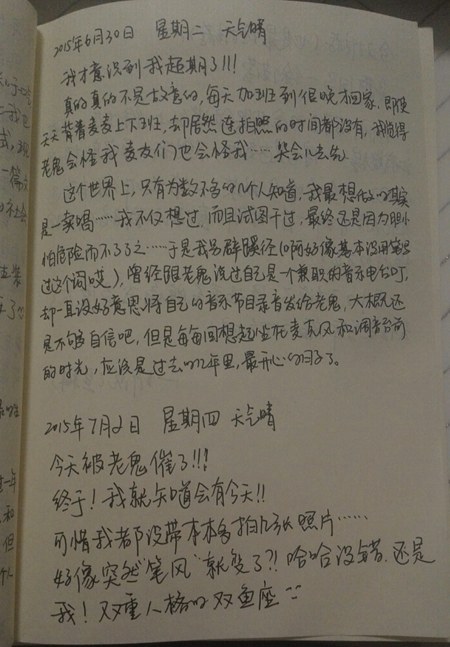 2015年6月30日 星期二 天气晴
我才意识到我超期了!!!
真的真的不是故意的,每天加班到很晚才回家.即使
天天背着麦麦上下班,却居然连拍照的时间都没有,我觉得
老鬼会怪我 麦友们也会怪我……哭会儿去先
这个世界上,只有为数不多的几个人知道,我最想做的其实
是一卖唱……我不仅想过,而且试图干过,最终还是因为胆小
怕危险而不了了之……于是我另辟蹊径(啊好像基本没用笔写
过这个词哎),曾经跟老鬼说过自己是个兼职的音乐电台DJ,
却一直没好意思将自己的音乐节目录音发给老鬼,大概还
是不够自信吧,但是每每回想起坐在麦克风和调音台前
的时光,应该是过去的几年里,最开心的日子了。
2015年7月2日 星期四 天气晴
今天被老鬼催了!!!
终于!我就知道会有今天!!
可惜我都没带本本多拍几张照片……
好像突然“笔风”就变了?!哈哈没错,还是
我!双重人格的双鱼座